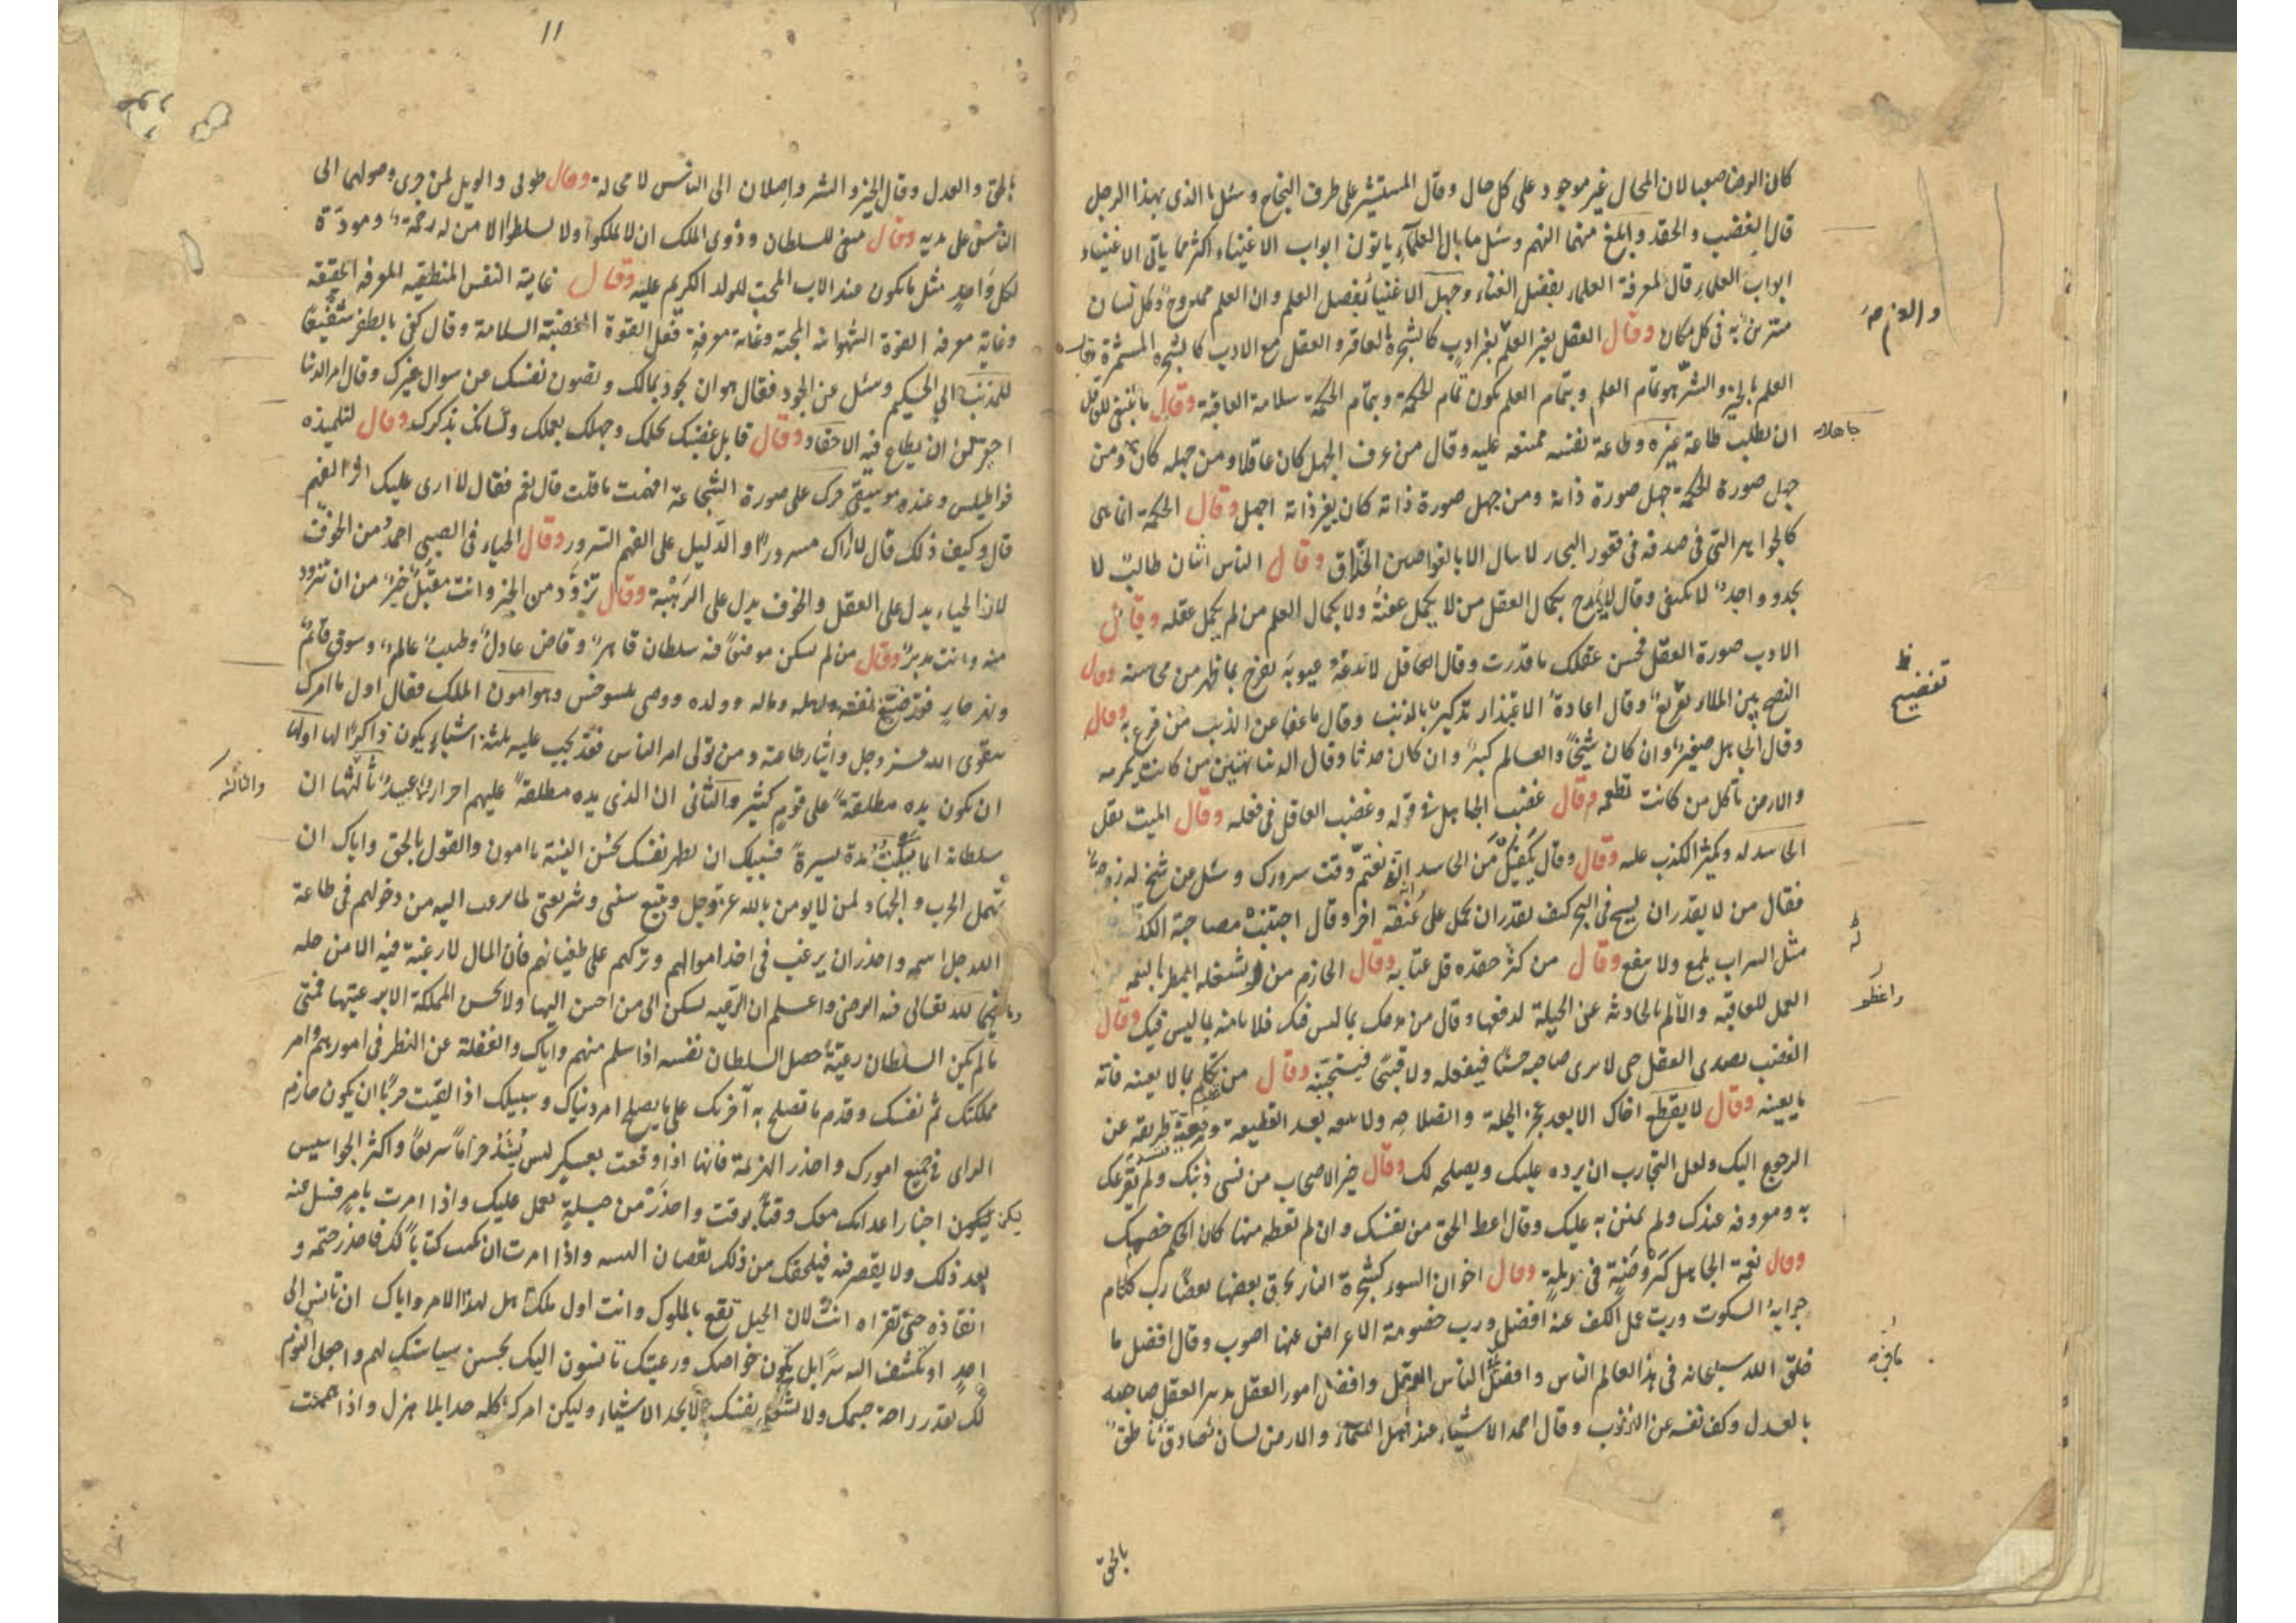 كان الرضا صعبا لان المحال غير موجود على كل حال وقال المستشير على طرف النجاح وسئل ما الذى يهذا الرجل
قال الغضب والحقد وابلغ منهما الهم وسئل ما بال العلماء ياتون ابواب الاغنياء اكثر مما ياتى الاغنياء
ابواب العلماء قال لمعرفة العلماء بفضل الغناء وجهل الاغنياء بفضل العلم وان العلم ممدوح بكل لسان
به فى كل مكان وقال العقل بغير العلم بغير ادب كالشجرة العاقر و العقل مع الادب كالشجرة المثمرة
العلم بالخير والشر هو تمام العلم وبتمام العلم يكون تمام الحكمة وبتمام الحكمة سلامة العاقبة وقال ما ينبغى للعاقل
ان يطلب طاعة غيره وطاعة نفسه ممتنعه عليه وقال من عرف الجهل كان عاقلا ومن جهله كان ومن
جاهلا
جهل صورة الحكمة جهل صورة ذاته ومن جهل صورة ذاته كان بغير ذاته اجهل وقال الحكمة انما هى
كالجواهر التى فى صدفه فى قعور البحار لا ينال الا بالغواصين الحذاق وقال الناس اثنان طالب لا
يجد وواجد لا يكتفى وقال لا يمدح بكمال العقل من لا يكمل عفته ولا بكمال العلم من لم يكمل عقله وقال
الادب صورة العقل فحسن عقلك ما قدرت وقال العاقل لا تدعه عيوبه يفرح بما ظهر من محاسنه وقال
النصح بين الملاء تقريع وقال اعادة الاعتذار تذكير بالذنب وقال ما عفا عن الذنب من قرع به وقال
تفضيح
وقال الجاهل صغير وان كان شيخا والعالم كبير وان كان حدثا وقال الدنيا تهين من كانت يكرمه
والارض تأكل من كانت تطعمه وقال غضب الجاهل فى قوله وغضب العاقل فى فعله وقال الميت يقل
الحاسد له ويكثر الكذب عليه وقال وقال يكفيك من الحاسد انه يغتم وقت سرورك وسئل عن شيخ له زوجة
فقال من لا يقدر ان يسبح فى البحر كيف يقدر ان يحمل على عنقه اخر وقال اجتنب مصاحبة الكذاب
مثل السراب يلمع ولا ينفع وقال من كثر حقده قل عتابه وقال الحازم من لم يشغله البطر بالنعمة
العمل للعاقبه والالم بالحادثه عن الحيلة لدفعها وقال من مدحك بما ليس فيك فلا تامنه بما ليس فيك وقال
الغضب يصدى العقل حتى لا يرى صاحبه حسنا فيفعله ولا قبيحا فيتجنبه وقال من تكلم بما لا يعنيه فاته
ما يعينه وقال لا يقطع اخاك الا بعد عجز الحيلة ولا تتبعه بعد القطيعة وقيعة طريقه عن
الرجوع اليك ولعل التجارب ان يرده عليك ويصلحه لك وقال خير الاصحاب من نسى ذنبك ولم يقرعك
به ومعروفه عندك ولم يمنن به عليك وقال اعط الحق من نفسك وان لم تعطه منها كان الحكم خصمك
وقال نعمة الجاهل كروضة فى مزبلة وقال اخوان السوء كشجرة النار يحرق بعضها بعضا رب كلام
جوابه السكوت ورب عمل الكف عنه افضل ورب خصومة الاعراض عنها اصوب وقال افضل ما
خلق الله سبحانه فى هذا العالم الناس وافضل الناس العقل وافضل امور العقل صاحبه
بالعدل وكف نفسه عن الذنوب وقال احمد الاشياء عند اهل السماء والارض لسان صادق ناطق
بالحق
١١
بالحق والعدل وقال الخير والشر واصلان الى الناس لا محالة وقال طوبى والويل لمن جرى وصولهما الى
الناس على يديه وقال ينبغى للسلطان وذوى الملك ان لا يملكوا ولا يسلطوا الا من له رحمة ومودة
لكل واحد مثل ما يكون عند الاب المحب للولد الكريم عليه وقال غاية النفس المنطقيه المعرفه الحقيقه
وغاية معرفة القوة الشهوانية المحبة وغاية معرفة فعل القوة الغضبية السلامة وقال كفى بالظفر شفيعا
للمذنب الى الحكيم وسئل عن الجود فقال هو ان تجود بمالك وتصون نفسك عن سوال غيرك وقال امر الدنيا
احقر من ان يطاع فيه الاحقاد وقال قابل غضبك بحلمك وجهلك بعلمك ونسيانك بذكرك وقال لتلميذه
وعنده موسيقى حرك على صورة الشجاعة افهمت ما قلت قال نعم فقال لا ارى عليك اثر الفهم
قال وكيف ذلك قال لا اراك مسرورا والدليل على الفهم السرور وقال الحياء فى الصبى احمد من الخوف
لان الحياء يدل على العقل والخوف يدل على الرهبة وقال تزود من الخير وانت مقبل خير من ان تتزود
منه وانت مدبر وقال من لم يسكن موضعا فيه سلطان قاهر وقاض عادل وطبيب عالم وسوق قائم
ونهر جار فقد ضيع نفسه واهله وماله وولده ووصى وهو امون الملك فقال اول ما امرك
بتقوى الله عز وجل وايثار طاعته ومن تولى امر الناس فقد يجب عليه بثلثة اشياء يكون ذاكرا لها اولها
ان يكون يده مطلقة على قوم كثير والثانى ان الذى يده مطلقة عليهم احرار لا عبيد ثالثها ان
والثالثه
سلطانه انما يلبث مدة يسيرة فسبيلك ان تطهر نفسك بحسن النية يا امون والقول بالحق واياك ان
تهمل الحرب والجهاد لمن لا يومن بالله عز وجل ويتبع سنتى وشريعتى من دخولهم فى طاعة
الله جل اسمه واحذر ان يرغب فى اخذ اموالهم وتركهم على طغيانهم فان المال لا رغبة فيه الا من حله
لله تعالى فيه الرضى واعلم ان الرعيه يسكن الى من احسن اليها ولا يحسن المملكة الا برعيتها فمتى
ما لم يكن السلطان رعية حصل السلطان نفسه اذا سلم منهم واياك والغفلة عن النظر فى امورهم وامر
مملكتك ثم نفسك وقدم ما تصلح به آخرتك على ما يصلح امر دنياك وسبيلك اذا لقيت حربا ان يكون حازم
الراى فى جميع امورك واحذر الهزيمة فانها اذا وقعت بعسكر سريعا واكثر الجواسيس
يكن اخبار اعدائك معك وقتا بوقت واحذر من حيلة تعمل عليك واذا امرت بامر فسئل عنه
بعد ذلك ولا يقصر فيه فيلحقك من ذلك نقصان واذا امرت ان يكتب كتابا لك فاحذر ختمه و
انفاذه حتى تقراه انت لان الحيل تقع بالملوك وانت اول ملك اهل لهذا الامر واياك ان تانس الى
احد او تكشف اليه سرا بل يكون خواصك ورعيتك تانسون اليك بحسن سياستك لهم واجعل النوم
لك بقدر راحة جسمك ولا نفسك الا بجد الاشياء وليكن امرك كله جدا بلا هزل واذا هممت